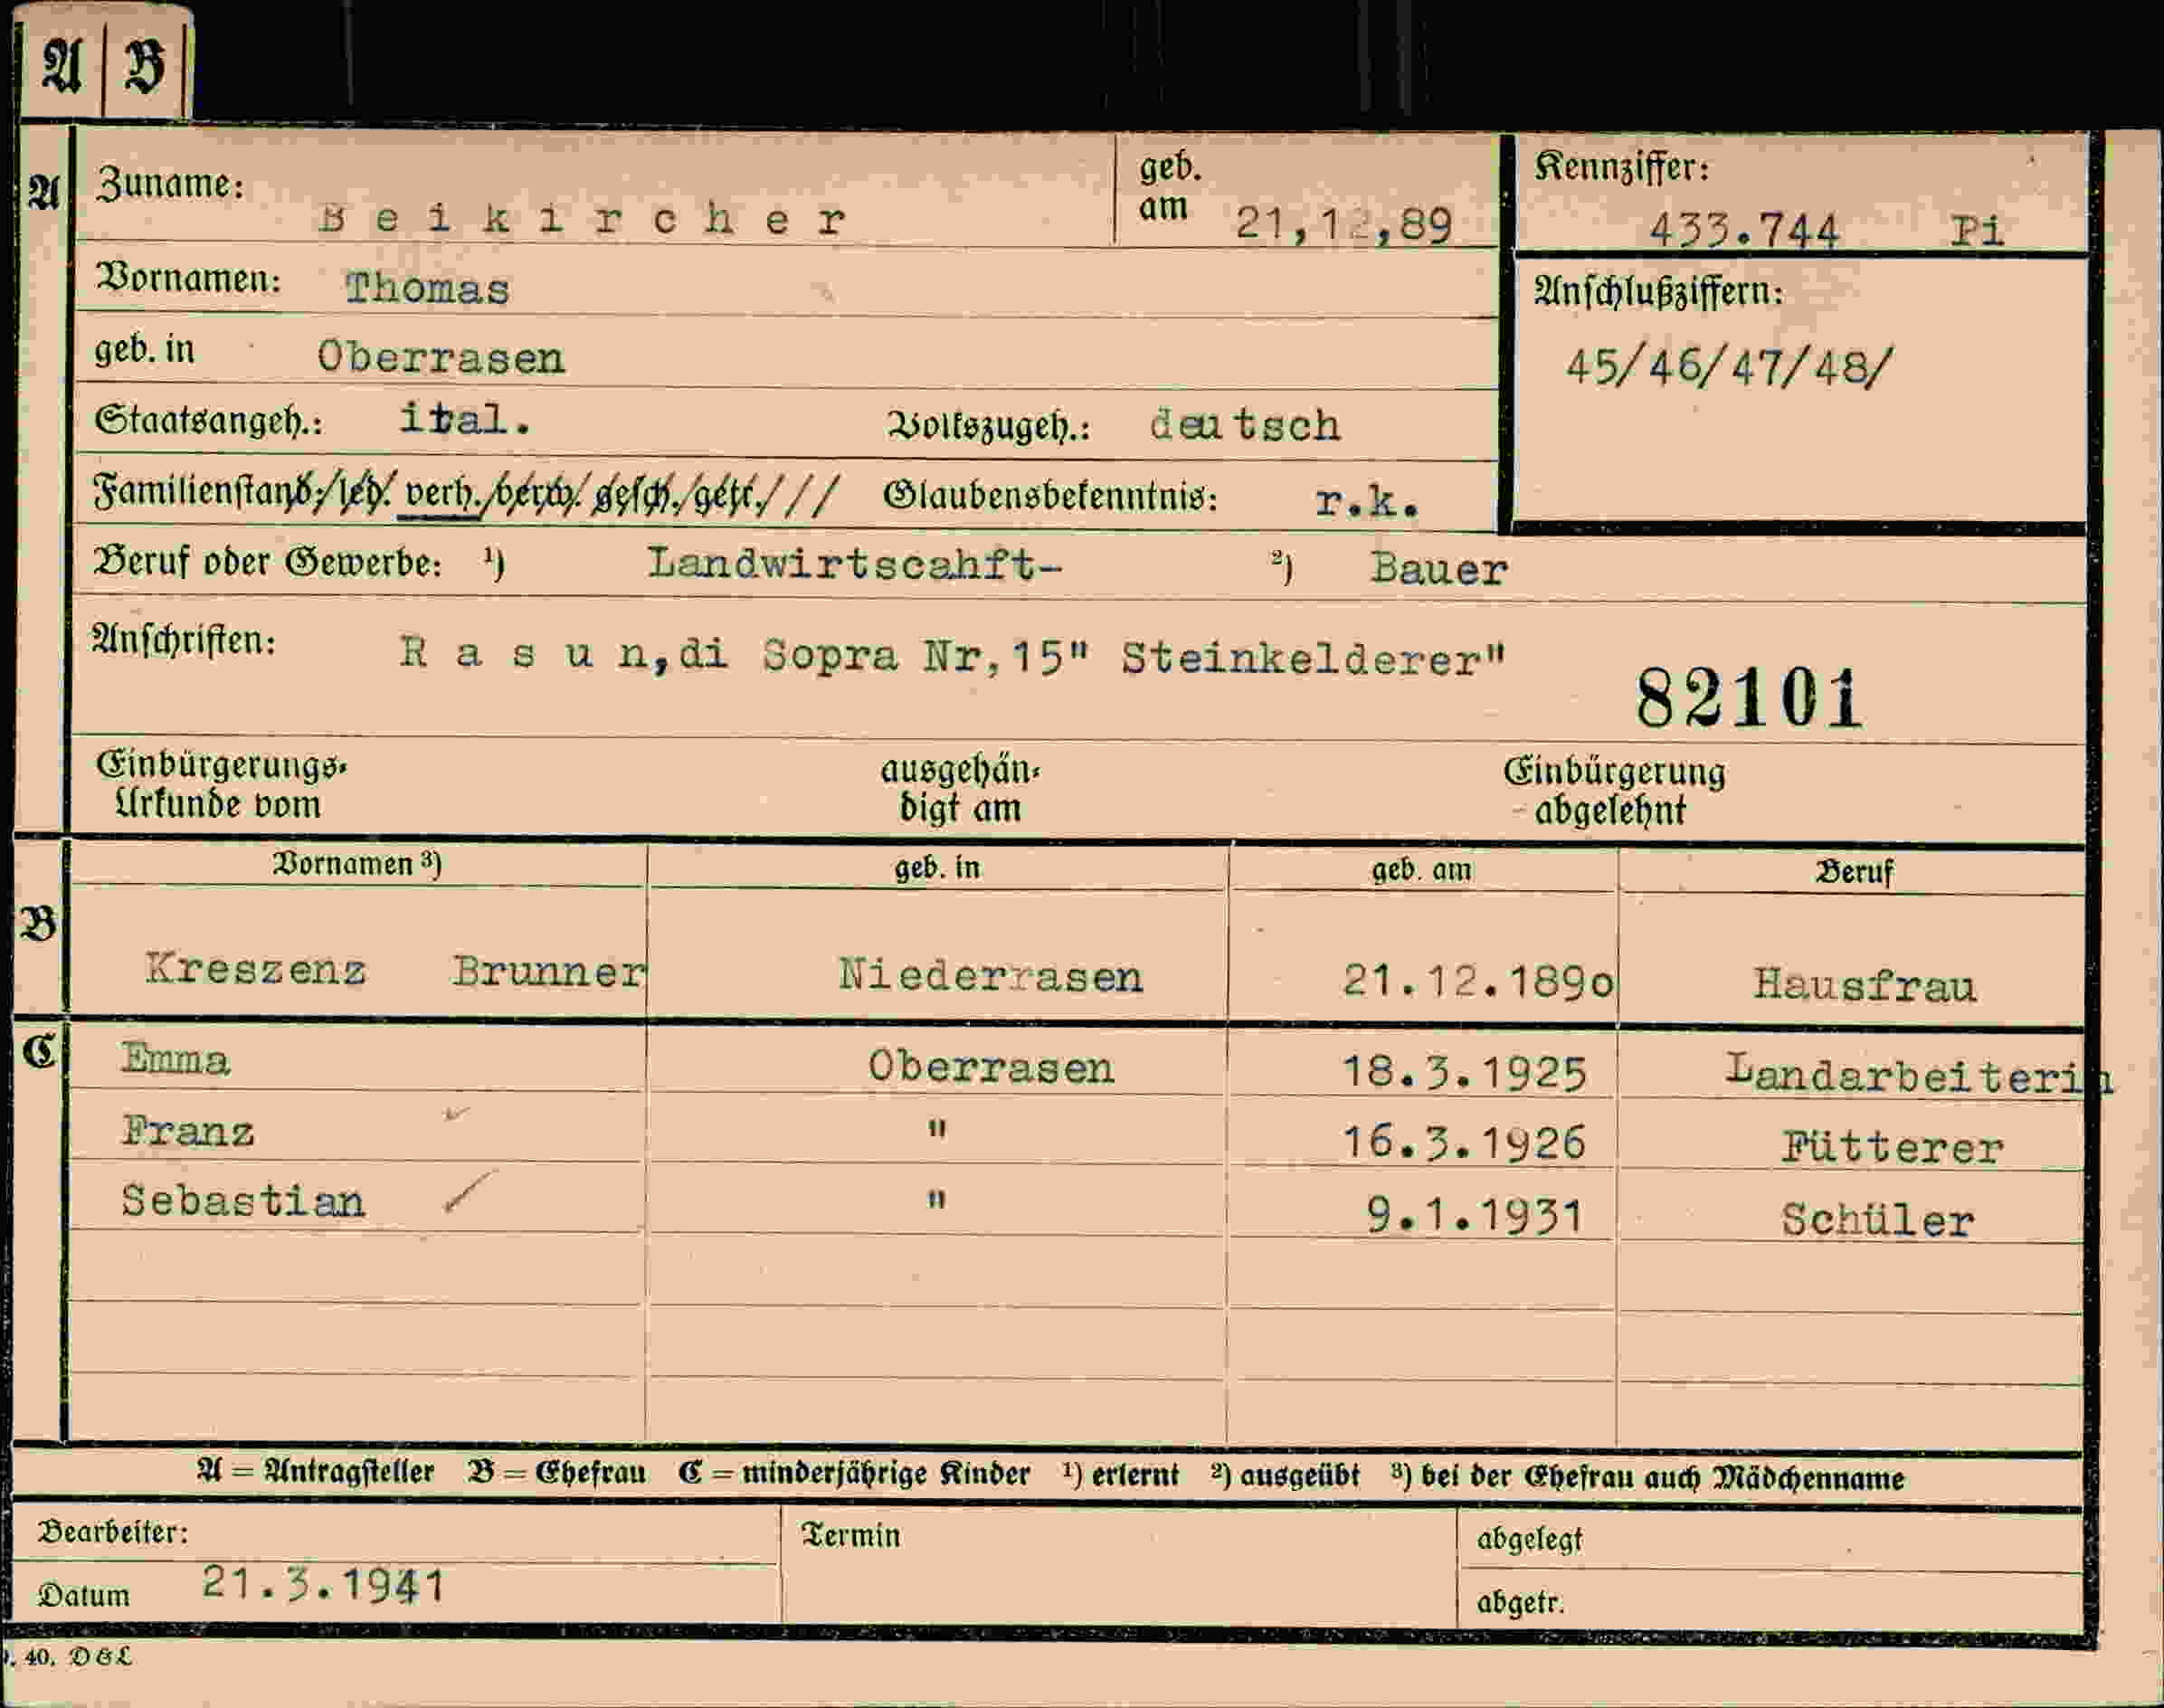 A B
A Zuname: Beikircher geb. am 21,12,89 Kennziffer: 433.744 Pi
Vornamen: Thomas Anschlußziffern:
geb. in Oberrasen 45/46/47/48/
Staatsangeh.: ital. Volkszugeh.: deutsch
Familienstand: led. verh. verw. gesch. getr. /// Glaubensbekenntnis: r.k.
Beruf oder Gewerbe: ¹) Landwirtscahft- ²) Bauer
Anschriften: Rasun,di Sopra Nr,15" Steinkelderer"
82101
Einbürgerungs- ausgehän- Einbürgerung
Urkunde vom digt am abgelehnt
Vornamen ³) geb. in geb. am Beruf
B
Kreszenz Brunner Niederrasen 21.12.189o Hausfrau
C Emma Oberrasen 18.3.1925 Landarbeiterin
Franz " 16.3.1926 Fütterer
Sebastian " 9.1.1931 Schüler
A = Antragsteller B = Ehefrau C = minderjährige Kinder ¹) erlernt ²) ausgeübt ³) bei der Ehefrau auch Mädchenname
Bearbeiter: Termin abgelegt
Datum 21.3.1941 abgetr.
. 40. D&L